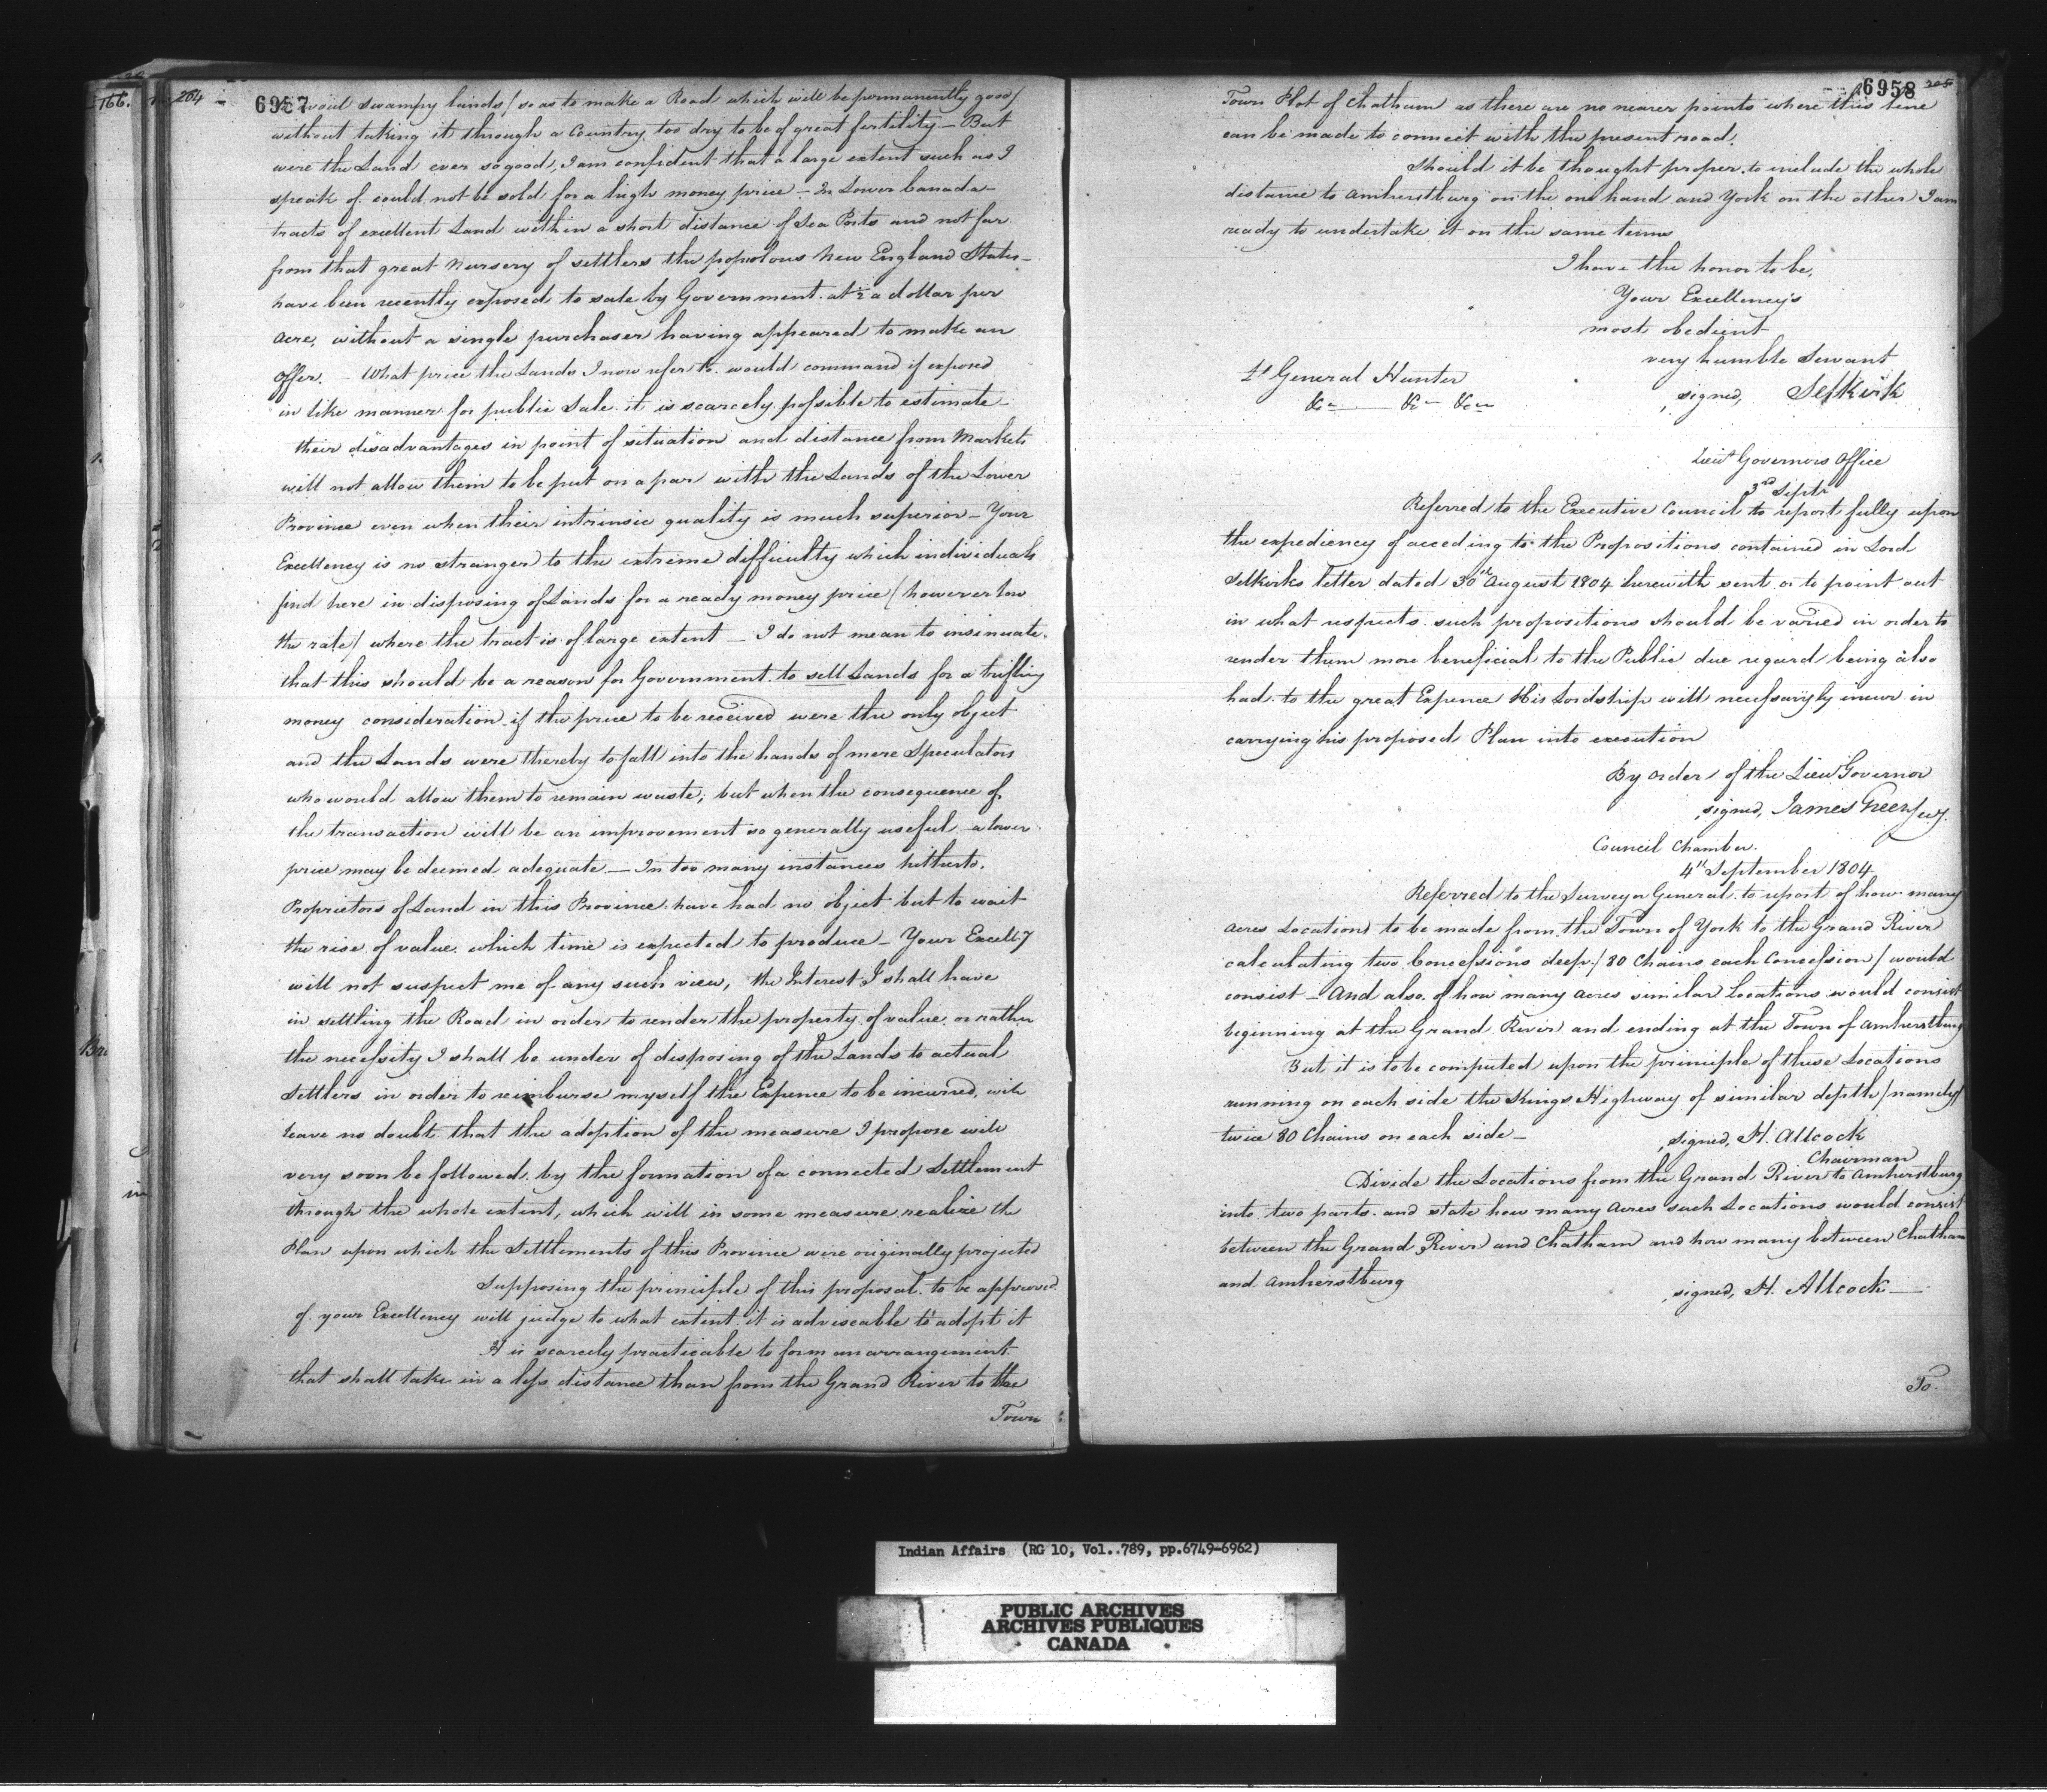 166.
204
6957
to avoid swampy lands / so as to make a Road which will be permanently good /
without taking it through a Country too dry to be of great fertility – But
were the Land ever so good, I am confident that a large extent such as I
speak of could not be sold for a high money price – In Lower Canada
tracts of excellent Land within a short distance of Sea Ports and not far
from that great Nursery of settlers the populous New England States –
have been recently exposed to sale by Government at ½ a dollar per
acre, without a single purchaser having appeared to make an
offer. – What price the Lands I now refer to would command if exposed
in like manner for public Sale it is scarcely possible to estimate –
their disadvantages in point of situation and distance from Markets
will not allow them to be put on a par with the Lands of the Lower
Province even when their intrinsic quality is much superior – Your
Excellency is no stranger to the extreme difficulty which individuals
find here in disposing of Lands for a ready money price / however low
the rate / where the tract is of large extent – I do not mean to insinuate
that this should be a reason for Government to sell Lands for a trifling
money consideration if the price to be received were the only object
and the Lands were thereby to fall into the hands of mere Speculators
who would allow them to remain waste; but when the consequence of
the transaction will be an improvement so generally useful a lower
price may be deemed adequate – In too many instances hitherto,
Proprietors of Land in this Province have had no object but to wait
the rise of value which time is expected to produce – Your Excell'y
will not suspect me of any such view, the Interest I shall have
in settling the Road in order to render the property of value, or rather
the necessity I shall be under of disposing of the Lands to actual
Settlers in order to reimburse myself the Expence to be incurred, will
leave no doubt that the adoption of the measure I propose will
very soon be followed by the formation of a connected Settlement
through the whole extent, which will in some measure realize the
Plan upon which the Settlements of this Province were originally projected
Supposing the principle of this proposal to be approved
of your Excellency will judge to what extent it is adviseable to adopt it
It is scarcely practicable to form an arrangement
that shall take in a less distance than from the Grand River to the
Town
6958
205
Town Plot of Chatham as there are no nearer points where this line
can be made to connect with the present road.
Should it be thought proper to include the whole
distance to Amherstburg on the one hand and York on the other I am
ready to undertake it on the same terms
I have the honor to be,
Your Excellency's
most obedient
very humble Servant
signed, Selkirk
Lt General Hunter
&c — &c — &c
Lieut Governors Office
3rd Septr
Referred to the Executive Council to report fully upon
the expediency of acceding to the Propositions contained in Lord
Selkirks letter dated 30th August 1804 herewith sent or to point out
in what respects such propositions should be varied in order to
render them more beneficial to the Public due regard being also
had to the great Expence His Lordship will necessarily incur in
carrying his proposed Plan into execution
By order of the Lieut Governor
signed, James Green Secy.
Council Chamber.
4th September 1804
Referred to the Surveyor General to report of how many
acres Locations to be made from the Town of York to the Grand River
calculating two Concessions deep / 80 Chains each Concession / would
consist – And also of how many acres similar Locations would consist
beginning at the Grand River and ending at the Town of Amherstburg
But it is to be computed upon the principle of these Locations
running on each side the Kings Highway of similar depth / namely /
twice 80 Chains on each side –
signed, H. Allcock
Chairman
Divide the Locations from the Grand River to Amherstburg
into two parts and state how many Acres such Locations would consist
between the Grand River and Chatham and how many between Chatham
and Amherstburg
signed, H. Allcock —
To.
Indian Affairs (RG 10, Vol..789, pp.6749-6962)
PUBLIC ARCHIVES
ARCHIVES PUBLIQUES
CANADA